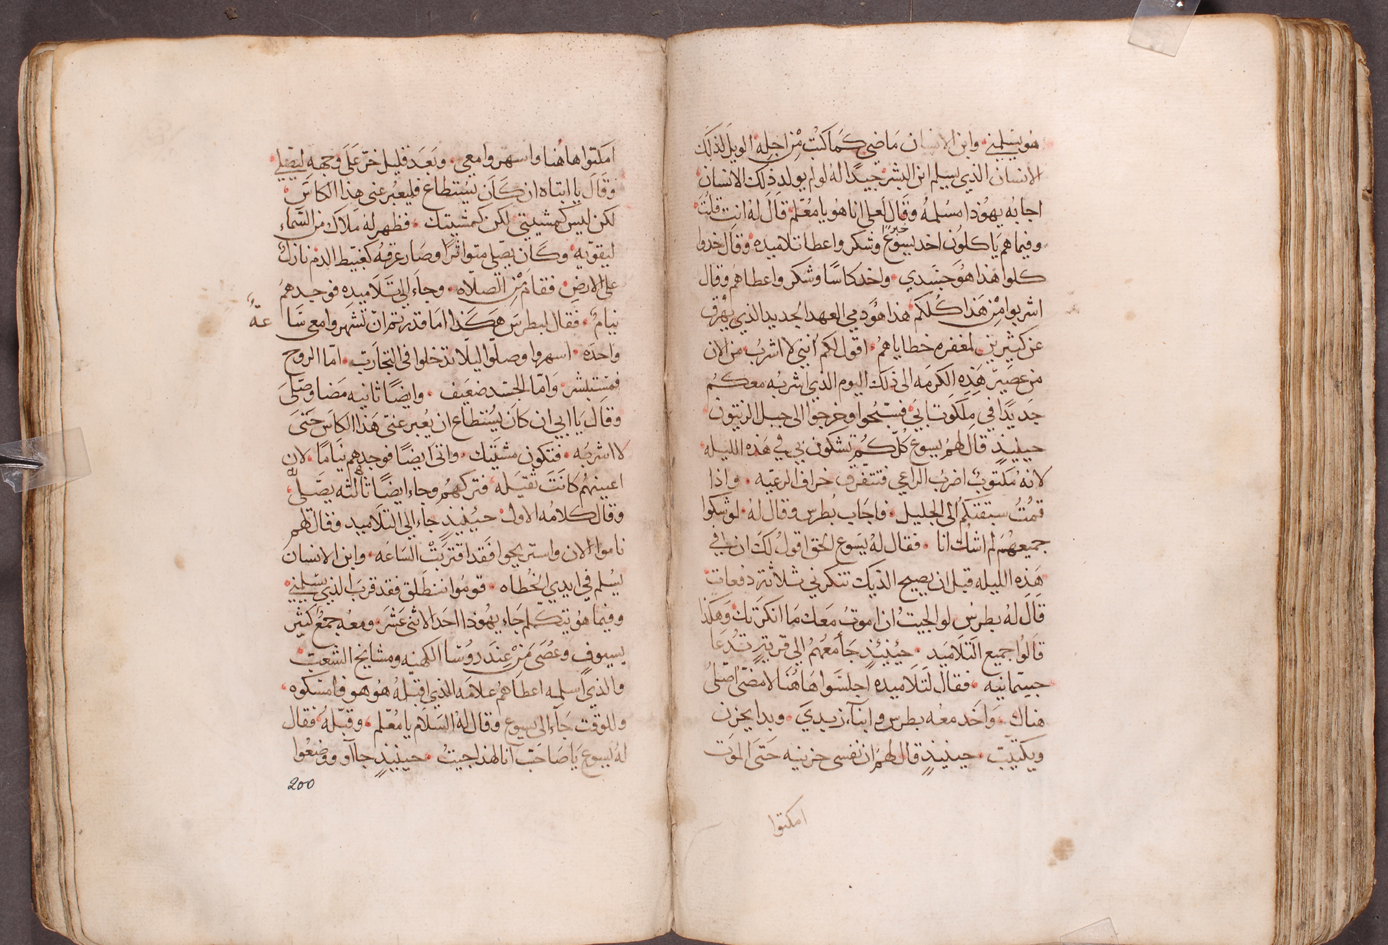 هو يسلمني وابن الانسان ماضي كما كتب من اجله الويل لذلك
الانسان الذي يسلم ابن البشر جيدًا له لو لم يولد ذلك الانسان
اجابه يهودا مسلمه وقال لعلي انا هو يا معلم قال له انت قلت
وفيما هم ياكلون اخد يسوع خبزا وشكر واعطا تلاميده وقال خدوا
كلوا هدا هو جسدي واخد كاسًا وشكر واعطاهم وقال
اشربوا من هدا كلكم هدا هو دمي العهد الجديد الدي يهرق
عن كثيرين لمغفره خطاياهم اقول لكم انني لا اشرب من الان
من عصير هذه الكرمه الى ذلك اليوم الدي اشربه معكم
جديدًا في ملكوت ابي فسبحوا وخرجوا الى جبل الزيتون
حينيدٍ قال لهم يسوع كلكم تشكون بي في هذه الليله
لانه مكتوب اضرب الراعي فتتفرق خراف الرعيه واذا
قمت سبقتكم الى الجليل فاجاب بطرس وقال له لو شكوا
جميعهم لم اشك انا فقال له يسوع الحق اقول لك ان في
هذه الليله قبل ان يصيح الديك تنكرني ثلاثة دفعات
قال له بطرس لو الجيت ان اموت معك ما انكرتك وهكذا
قالوا جميع التلاميد حينيدٍ جا معهم الى قرية تدعا
جسمانيه فقال لتلاميده اجلسوا هاهنا لامضي اصلي
هناك واخد معه بطرس وابناء زبدي وبدا يحزن
ويكتيب حينيدٍ قال لهم ان نفسي حزينه حتى الموت
امكتوا
امكتوا هاهنا واسهروا معي وبعد قليل خر على وجهه ليصلي
وقال يا ابتاه ان كان يستطاع فليعبر عني هدا الكاس
لكن ليس كمشيتي لكن كمشيتك فظهر له ملاك من السماء
ليقويه وكان يصلي متواترًا وصار عرقه كعبيط الدم نازل
على الارض فقام من الصلاه وجاء الى تلاميده فوجدهم
نيام فقال لبطرس هكدا اما قدرتم ان تسهروا معي سا
عة
واحده اسهروا وصلوا ليلا تدخلوا في التجارب اما الروح
فمستبشر واما الجسد ضعيف وايضًا ثانيه مضا وصلى
وقال يا ابي ان كان يستطاع ان يعبر عني هدا الكاس حتى
لا اشربه فتكون مشيتك واتى ايضًا فوجدهم نيامًا لان
اعينهم كانت تقيله فتركهم وجاء ايضًا ثالثه يصلي
وقال كلامه الاول حينيدٍ جاء الى التلاميد وقال لهم
ناموا الان واستريحوا فقد اقتربت الساعه وابن الانسان
يسلم في ايدي الخطاه قوموا ننطلق فقد قرب الدي يسلمني
وفيما هو يتكلم جاء يهودا احد الاثنى عشر ومعه جمع كثير
بسيوف وعصى من عند روسا الكهنه ومشايخ الشعب
والذي اسلمه اعطاهم علامه الذي اقبله هو هو فامسكوه
وللوقت جاء الى يسوع وقال له السلام يا معلم وقبله فقال
له يسوع يا صاحب آنا لهذا جيت حينيدٍ جاآو ووضعوا
200